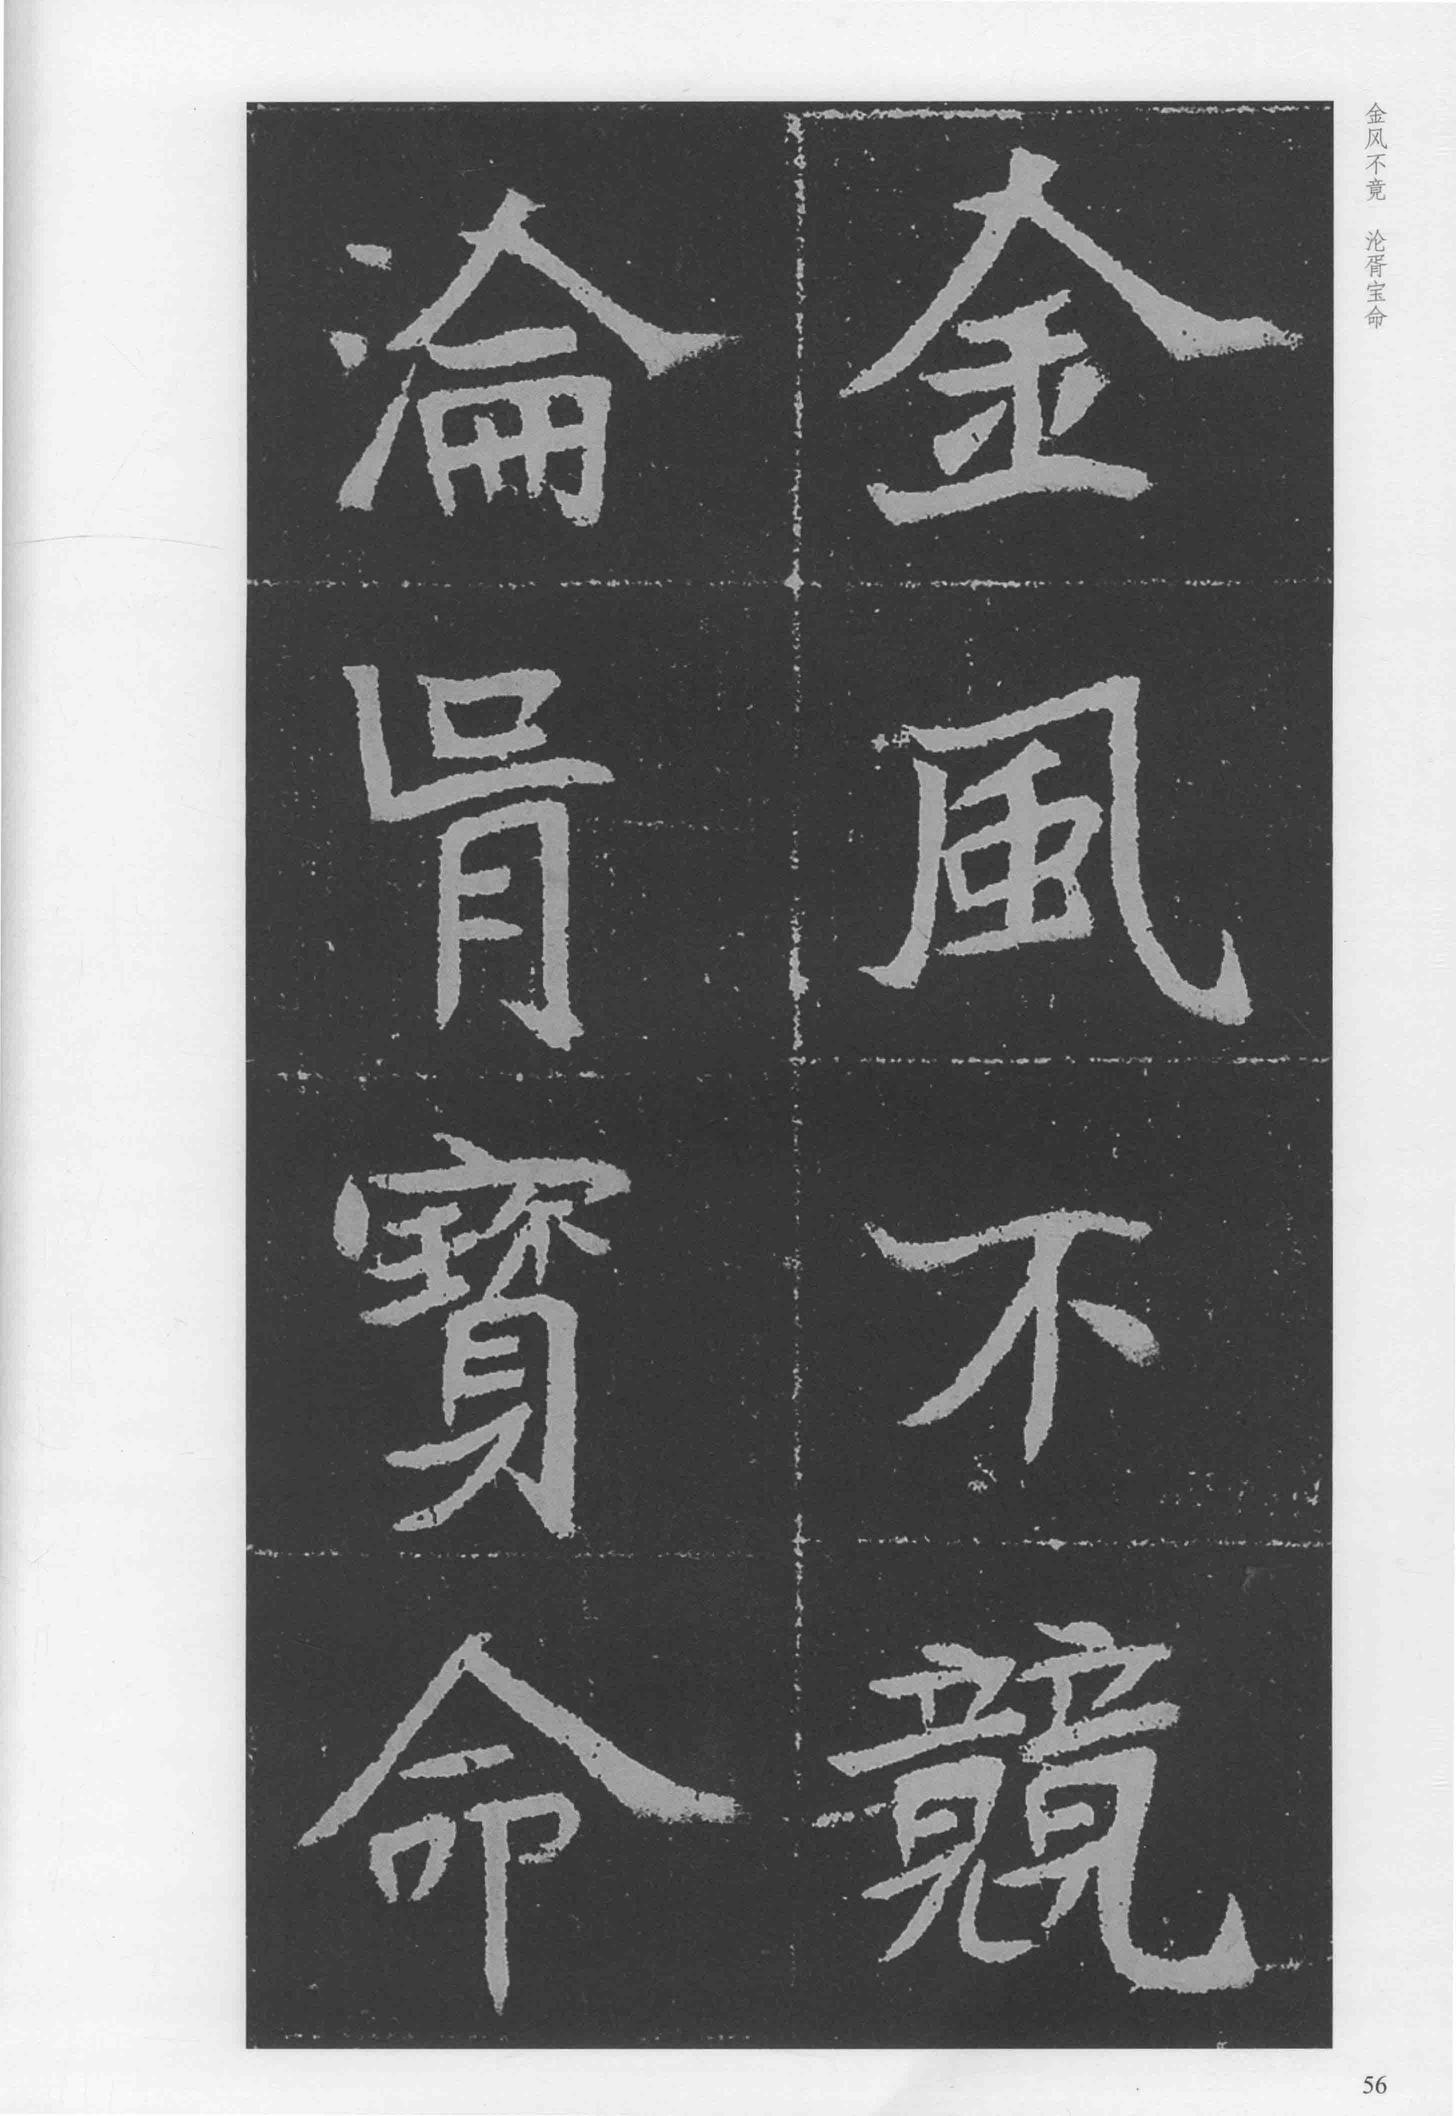 金風不競
淪胥寳命
金风不竞　沦胥宝命
56